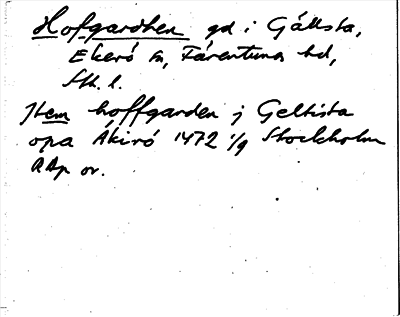 Hofgardhen gd i Gällsta,
Ekerö sn, Färentuna hd,
Sth. l.
Jtem hoffgarden j Geltista
opa Åkirö 1472 1/9 Stockholm
RAp or.